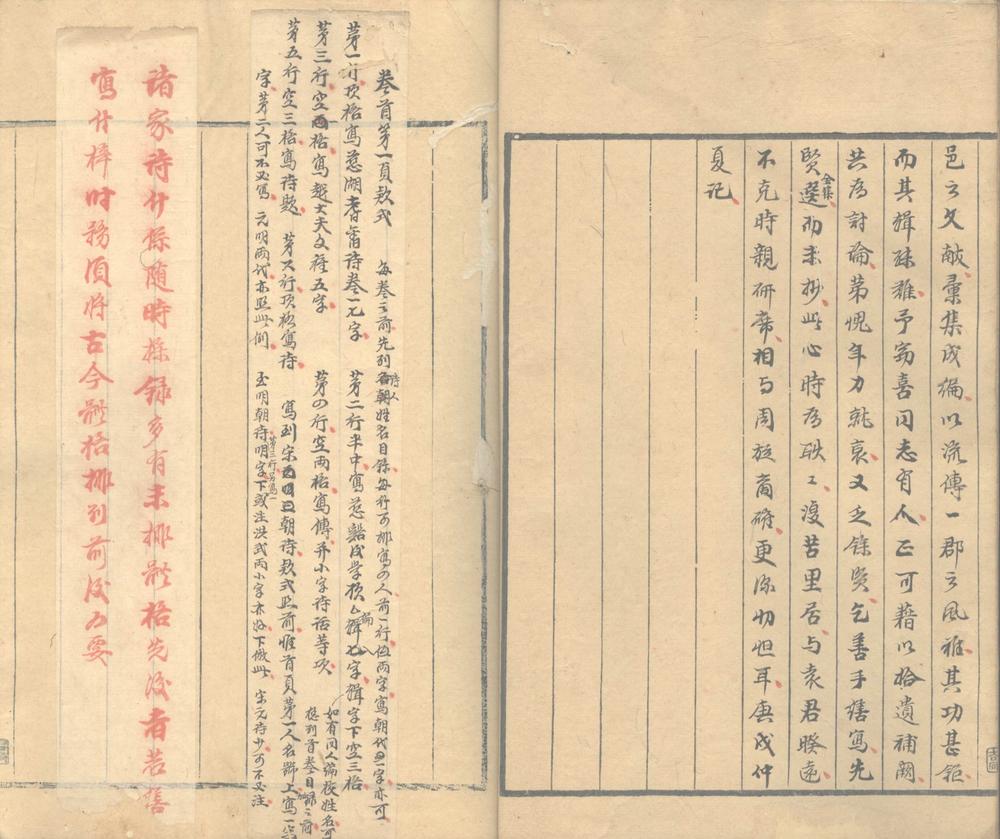 邑之文献彙集成編以流傳一郡之風雅其功甚鉅
而其緝殊難予窃喜同志有人正可藉以拾遺補闕
共為討論第愧年力就衰又乏餘賢乞善手謄寫先
賢全集選而未抄此心時為耿々漫苦里居与袁君暌遠
不克時親研席相与周旋商確更深切怛耳庚戌仲
夏记
卷首第一頁款式 每卷之前先列詩人姓名目錄每行可排寫四人前一行低兩字寫朝代一字亦可
第一行頂格寫慈湖耆舊詩卷一九字 第二行半中寫慈谿後學 編緝 字緝字下空三格
第三行空兩格寫越大夫文種五字 第四行空兩格寫傳并小字詩话等項 如有同人編校姓名可總列首卷目錄之前
第五行空三格寫詩題 第六行頂格寫詩 寫到宋 朝詩款式照前惟首頁第一人名號上寫一
字第二人可不必寫 元明兩代亦照此例 至明朝詩明字下或注洪武兩小字亦好下倣此 宋元詩少可不必注
諸家詩什係随時採録多有未排體格先後者若謄
寫付梓时務須将古今體格排列前後为要